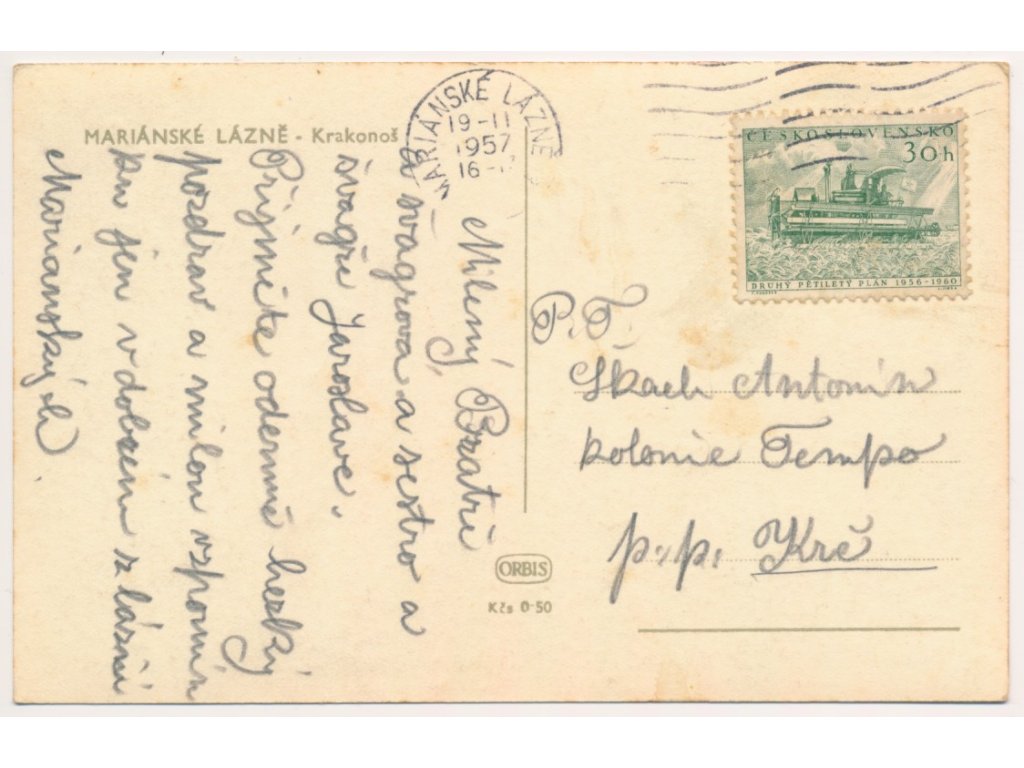 MARIÁNSKÉ LÁZNĚ - Krakonoš
MARIÁNSKÉ LÁZNĚ
19-II
1957
16-
ČESKOSLOVENSKO
30h
DRUHÝ PĚTILETÝ PLÁN 1956-1960
Milený Bratře
a švagrova a sestro a
švagře Jaroslave.
Přijměte odemně hezký
pozdrav a milou vzpomín
ku jen v dobrém z lázní
Marianských
P. T.
Škach Antonín
kolonie Tempo
p.p. Krč
ORBIS
Kčs 0·50